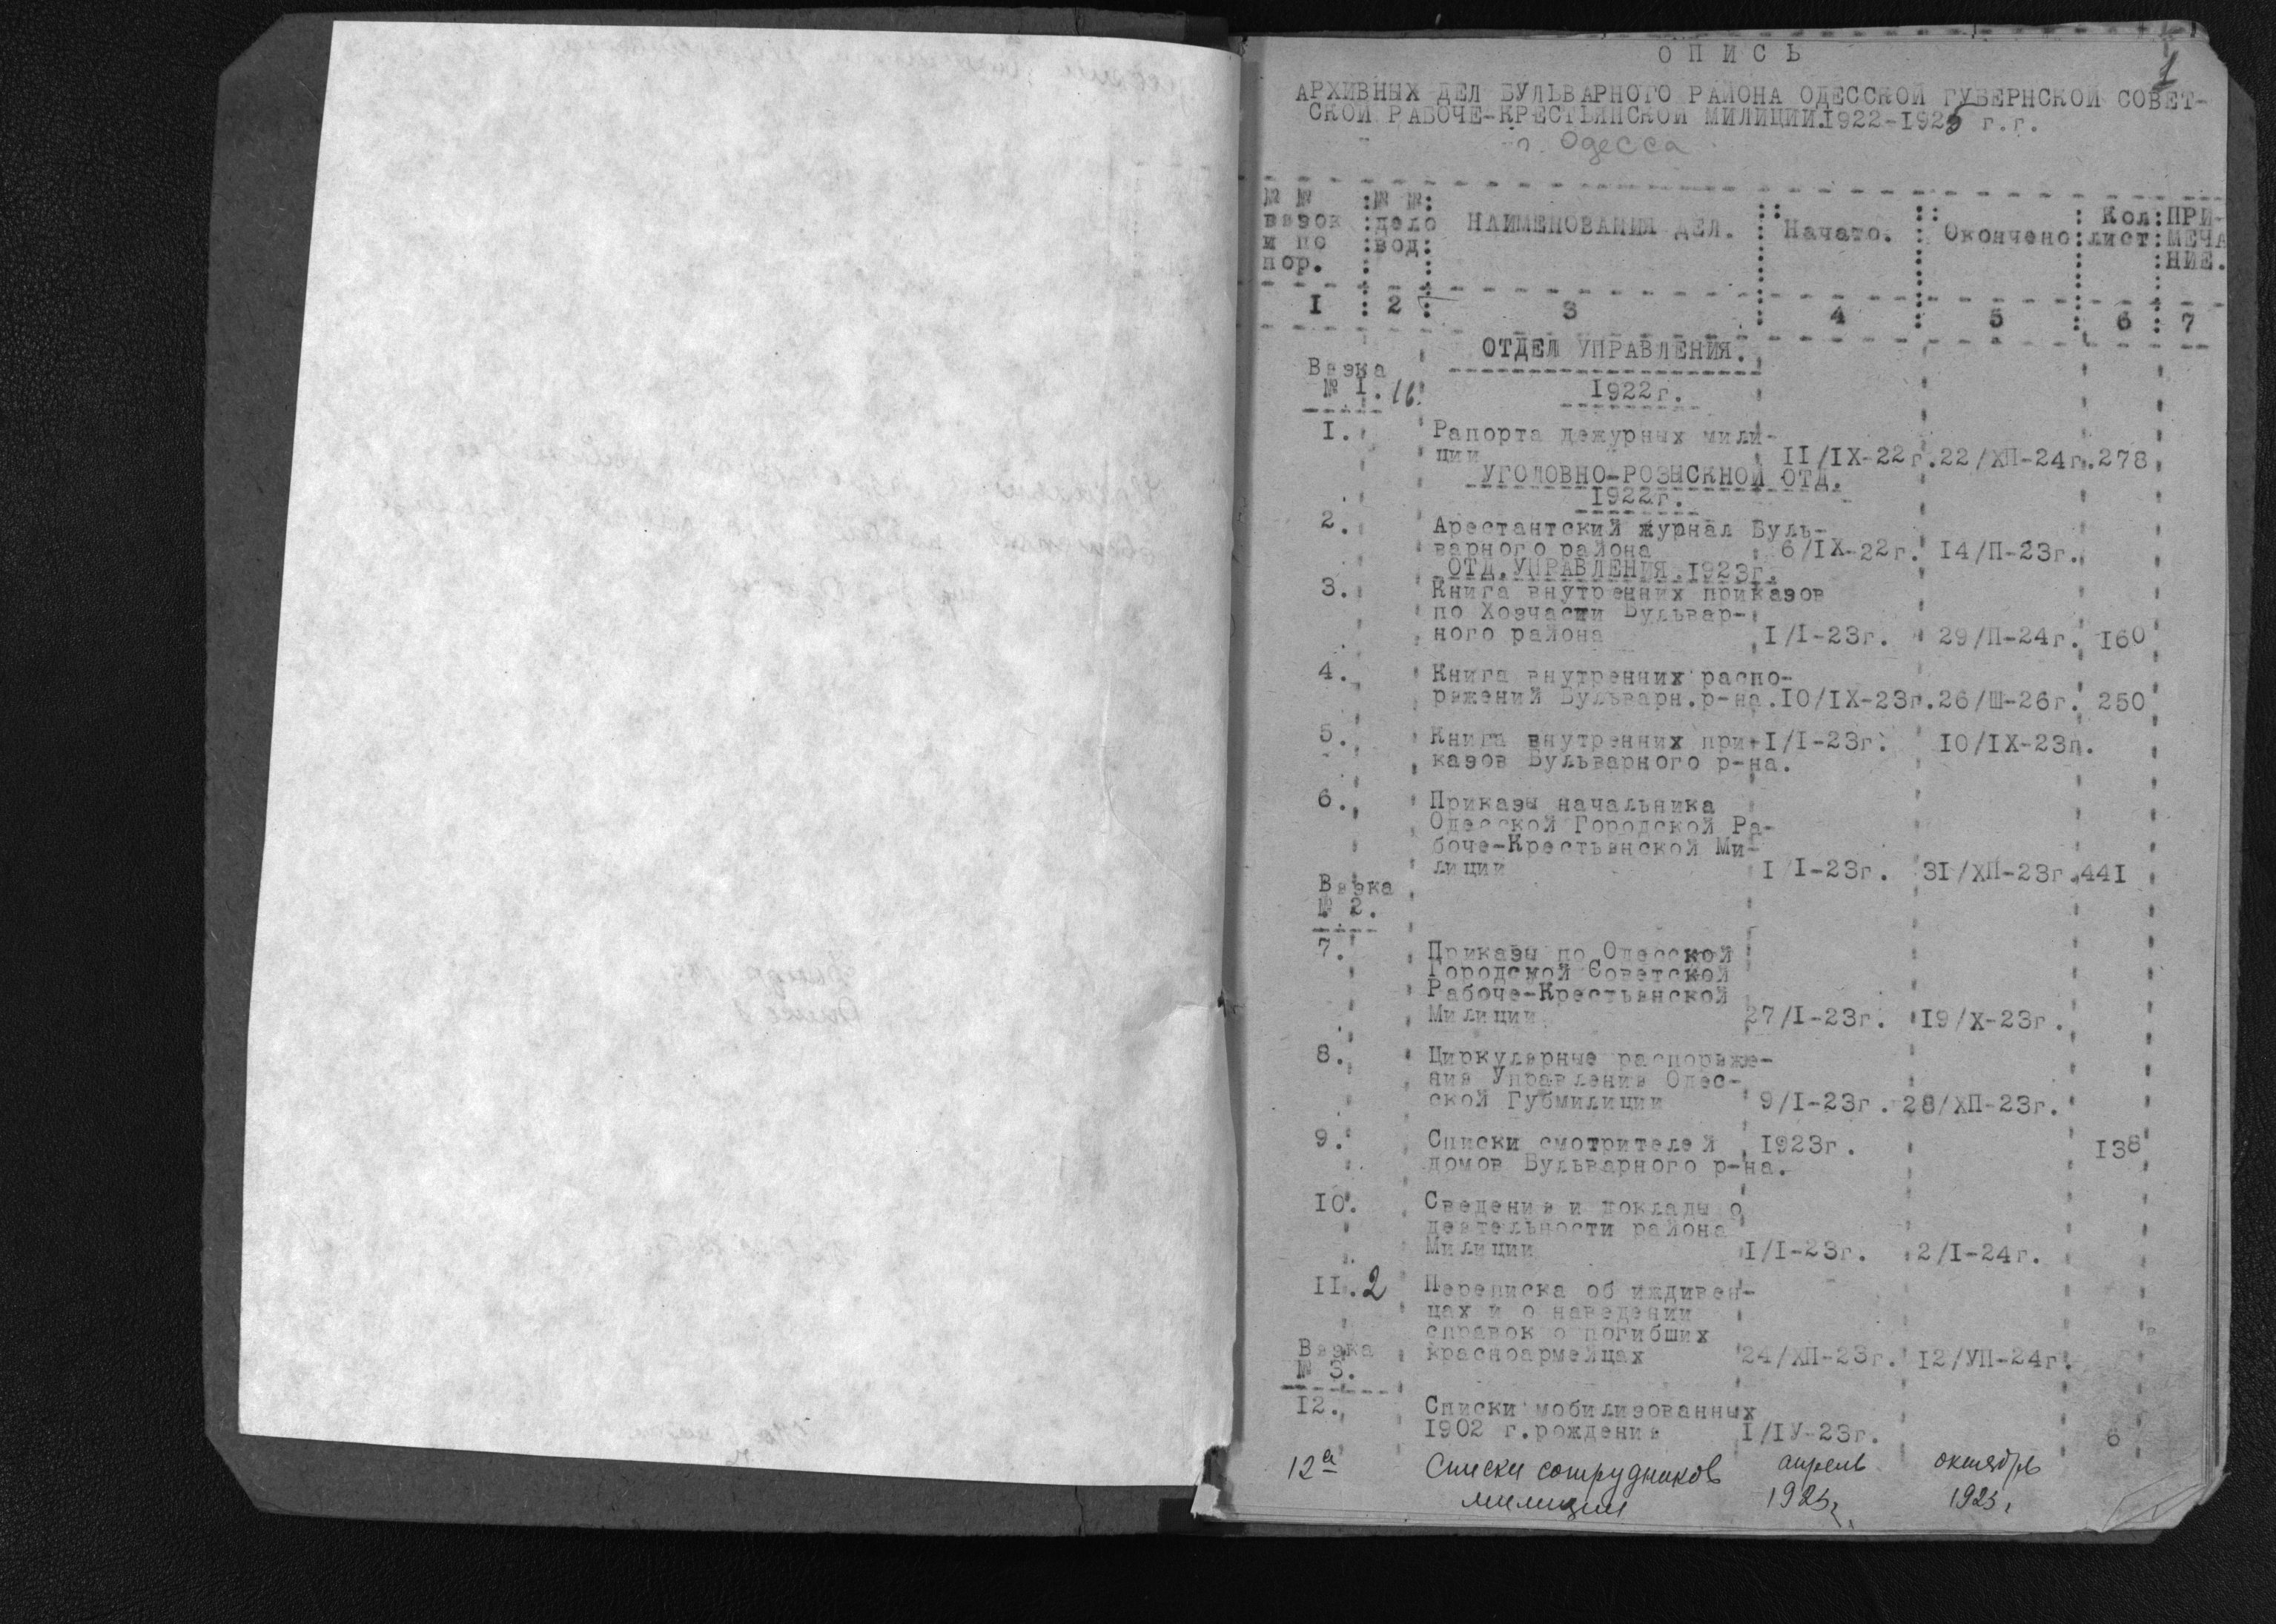 1
ОПИСЬ
АРХИВНЫХ ДЕЛ БУЛЬВАРНОГО РАЙОНА ОДЕССКОЙ ГУБЕРНСКОЙ СОВЕТ-
СКОЙ РАБОЧЕ-КРЕСТЬЯНСКОЙ МИЛИЦИИ.1922-1925 г.г.
г. Одесса
№ № вязок и по пор. :№ №: дело вод: НАИМЕНОВАНИЯ ДЕЛ. Начато. Окончено Кол лист ПРИ-МЕЧА НИЕ.
I 2 3 4 5 6 7
ОТДЕЛ УПРАВЛЕНИЯ.
Вязка
№ I. 16. 1922г.
I. Рапорта дежурных мили-
ции II/IX-22г. 22/ХП-24г. 278
УГОЛОВНО-РОЗЫСКНОЙ ОТД.
1922г.
2. Арестантский журнал Буль-
варного района 6/IX-22г. 14/П-23г.
ОТД.УПРАВЛЕНИЯ.1923г.
3. Книга внутренних приказов
по Хозчасти Бульвар-
ного района I/I-23г. 29/П-24г. 160
4. Книга внутренних распо-
ряжений Бульварн.р-на. IO/IX-23г. 26/Ш-26г. 250
5. Книга внутренних при- I/I-23г. IO/IX-23г.
казов Бульварного р-на.
6. Приказы начальника
Одесской Городской Ра-
боче-Крестьянской Ми-
лиции I I-23г. 31/ХП-23г. 441
Вязка
№ 2.
7. Приказы по Одесской
Городской Советской
Рабоче-Крестьянской
Милиции 27/I-23г. 19/X-23г.
8. Циркулярные распоряже-
ния Управления Одес-
ской Губмилиции 9/I-23г. 28/ХП-23г.
9. Списки смотрителей 1923г. 138
домов Бульварного р-на.
IO. Сведения и доклады о
деятельности района
Милиции I/I-23г. 2/I-24г.
II. 2 Переписка об иждивен-
цах и о наведении
справок о погибших
Вязка красноармейцах 24/ХП-23г. 12/УП-24г.
№ 3.
12. Списки мобилизованных
1902 г.рождения I/IУ-23г. 6
12а Списки сотрудников апрель октябрь
милиции 1923г. 1923г